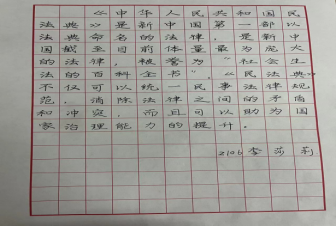 《中华人民共和国民
法典》是新中国第一部以
法典命名的法律，是新中
国截至目前体量最为庞大
的法律，被誉为“社会生
活的百科全书”，《民法典》
不仅可以统一民事法律规
范，消除法律之间的矛盾
和冲突，而且可以助力国
家治理能力的提升。
2106 李莎莉